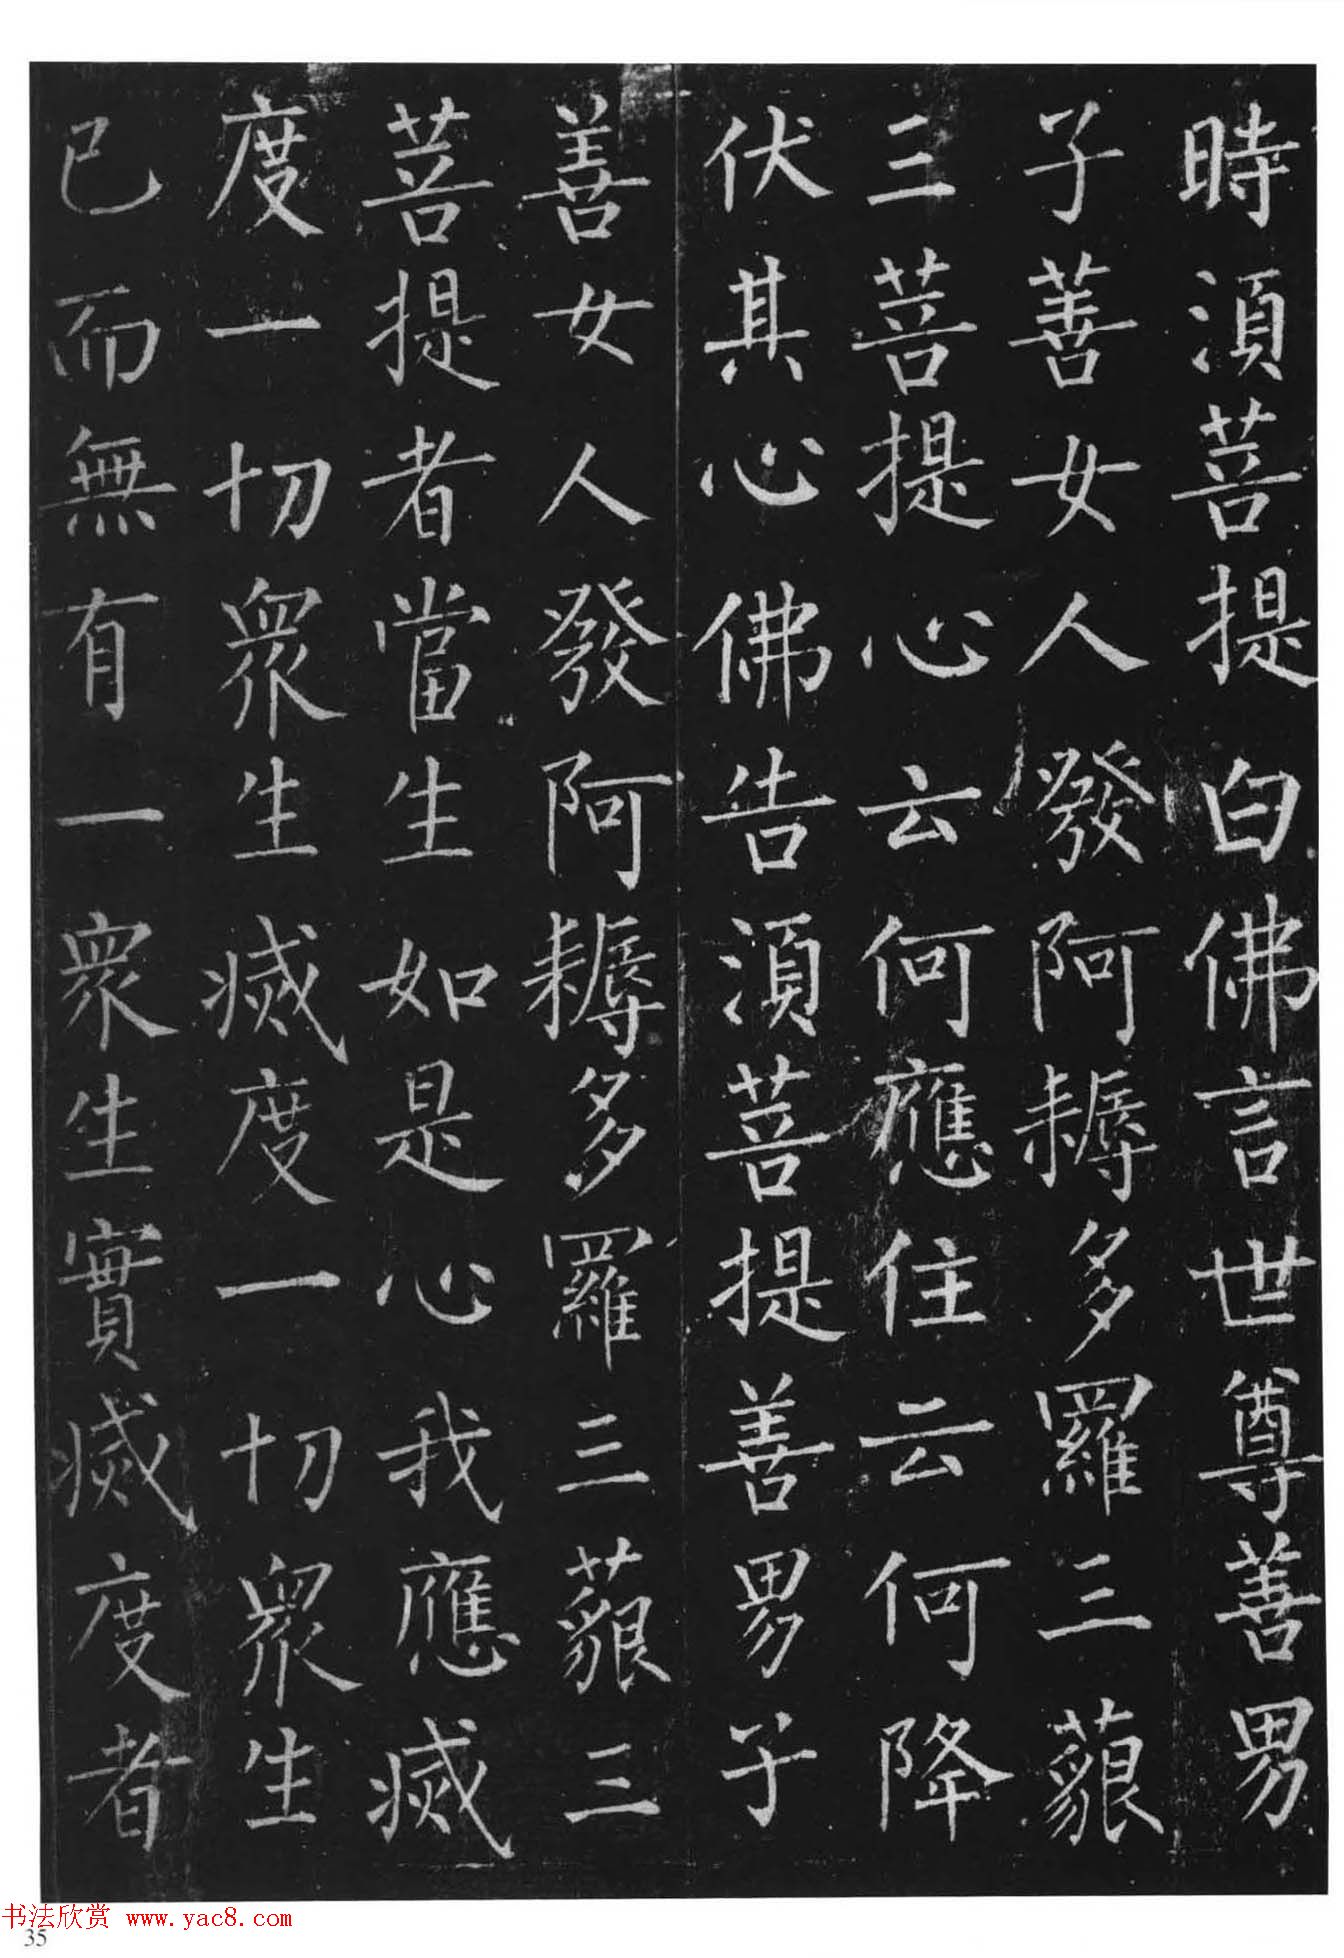 時湏菩提白佛言世尊善男
子善女人發阿耨多羅三藐
三菩提心云何應住云何降
伏其心佛告湏菩提善男子
善女人發阿耨多羅三藐三
菩提者當生如是心我應滅
度一切衆生滅度一切衆生
已而無有一衆生實滅度者
书法欣赏 www.yac8.com
35